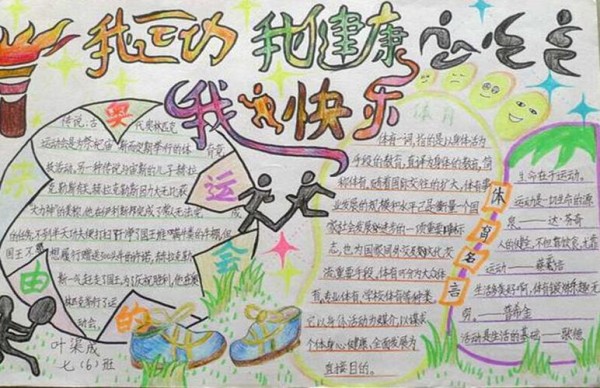 我运动 我健康
我快乐
奥运会的由来
传说,古代奥林匹克
运动会是为祭祀宙斯而定期举行的体育竞
技活动。另一种传说与宙斯的儿子赫拉
克勒斯有关。赫拉克勒斯因力大无比获
大力神的美称,他在伊利斯城邦完成了常人无法完成
国王不想履行赠送300头牛的许诺,赫拉克勒
斯一气赶走了国王,为了庆祝胜利,他在奥
林匹克举行了运
动会。
叶渠成
七(6)班
体育
体育一词,指的是以身体活动为
手段的教育,直译为身体的教育,简
称体育。随着国际交往的扩大,体育事
业发展的规模和水平已是衡量一个国
家社会发展进步的一项重要标
志,也为国家间外交及文化交
流重要手段。体育可分为大众体
育,专业体育,学校体育等种类。
它以身体活动为媒介,以谋求
个体身心健康、全面发展为
直接目的。
体育名言
生命在于运动。
运动是一切生命的源
泉。——达·芬奇
运动——蔡元培
生活多美好啊,体育锻炼乐趣无
穷。——普希金
活动是生活的基础——歌德